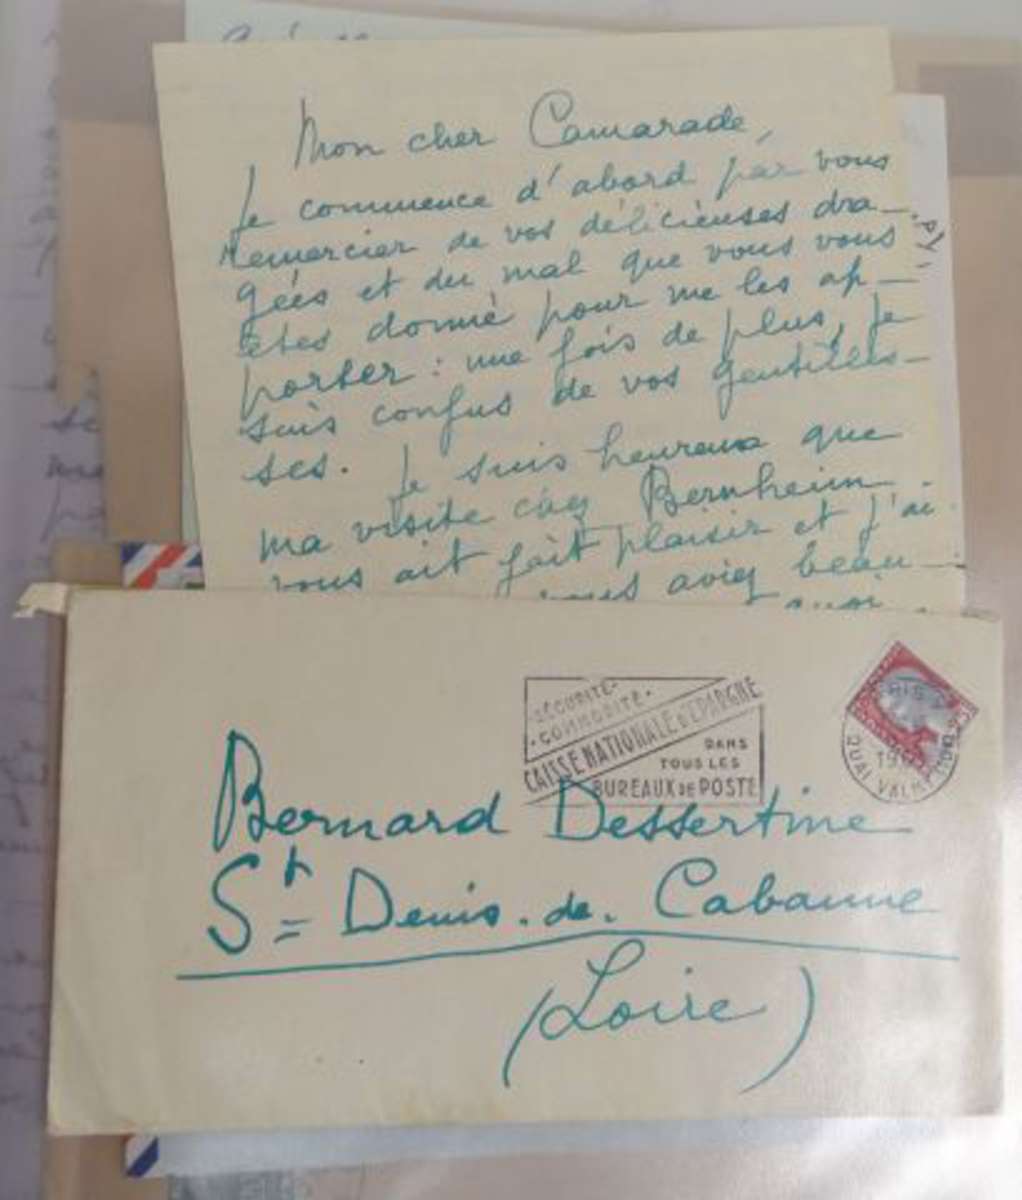 Mon cher Camarade,
Je commence d'abord par vous
remercier de vos délicieuses dra-
gées et du mal que vous vous
êtes donné pour me les ap-
porter : une fois de plus, je
suis confus de vos gentilles-
ses. Je suis heureux que
ma visite chez Bernheim
vous ait fait plaisir et j'ai
vous aviez beau-
SÉCURITÉ.
COMMODITÉ.
CAISSE NATIONALE D'EPARGNE
DANS
TOUS LES
BUREAUX DE POSTE
QUAI VALMY
Bernard Dessertine
St Denis-de-Cabanne
(Loire)